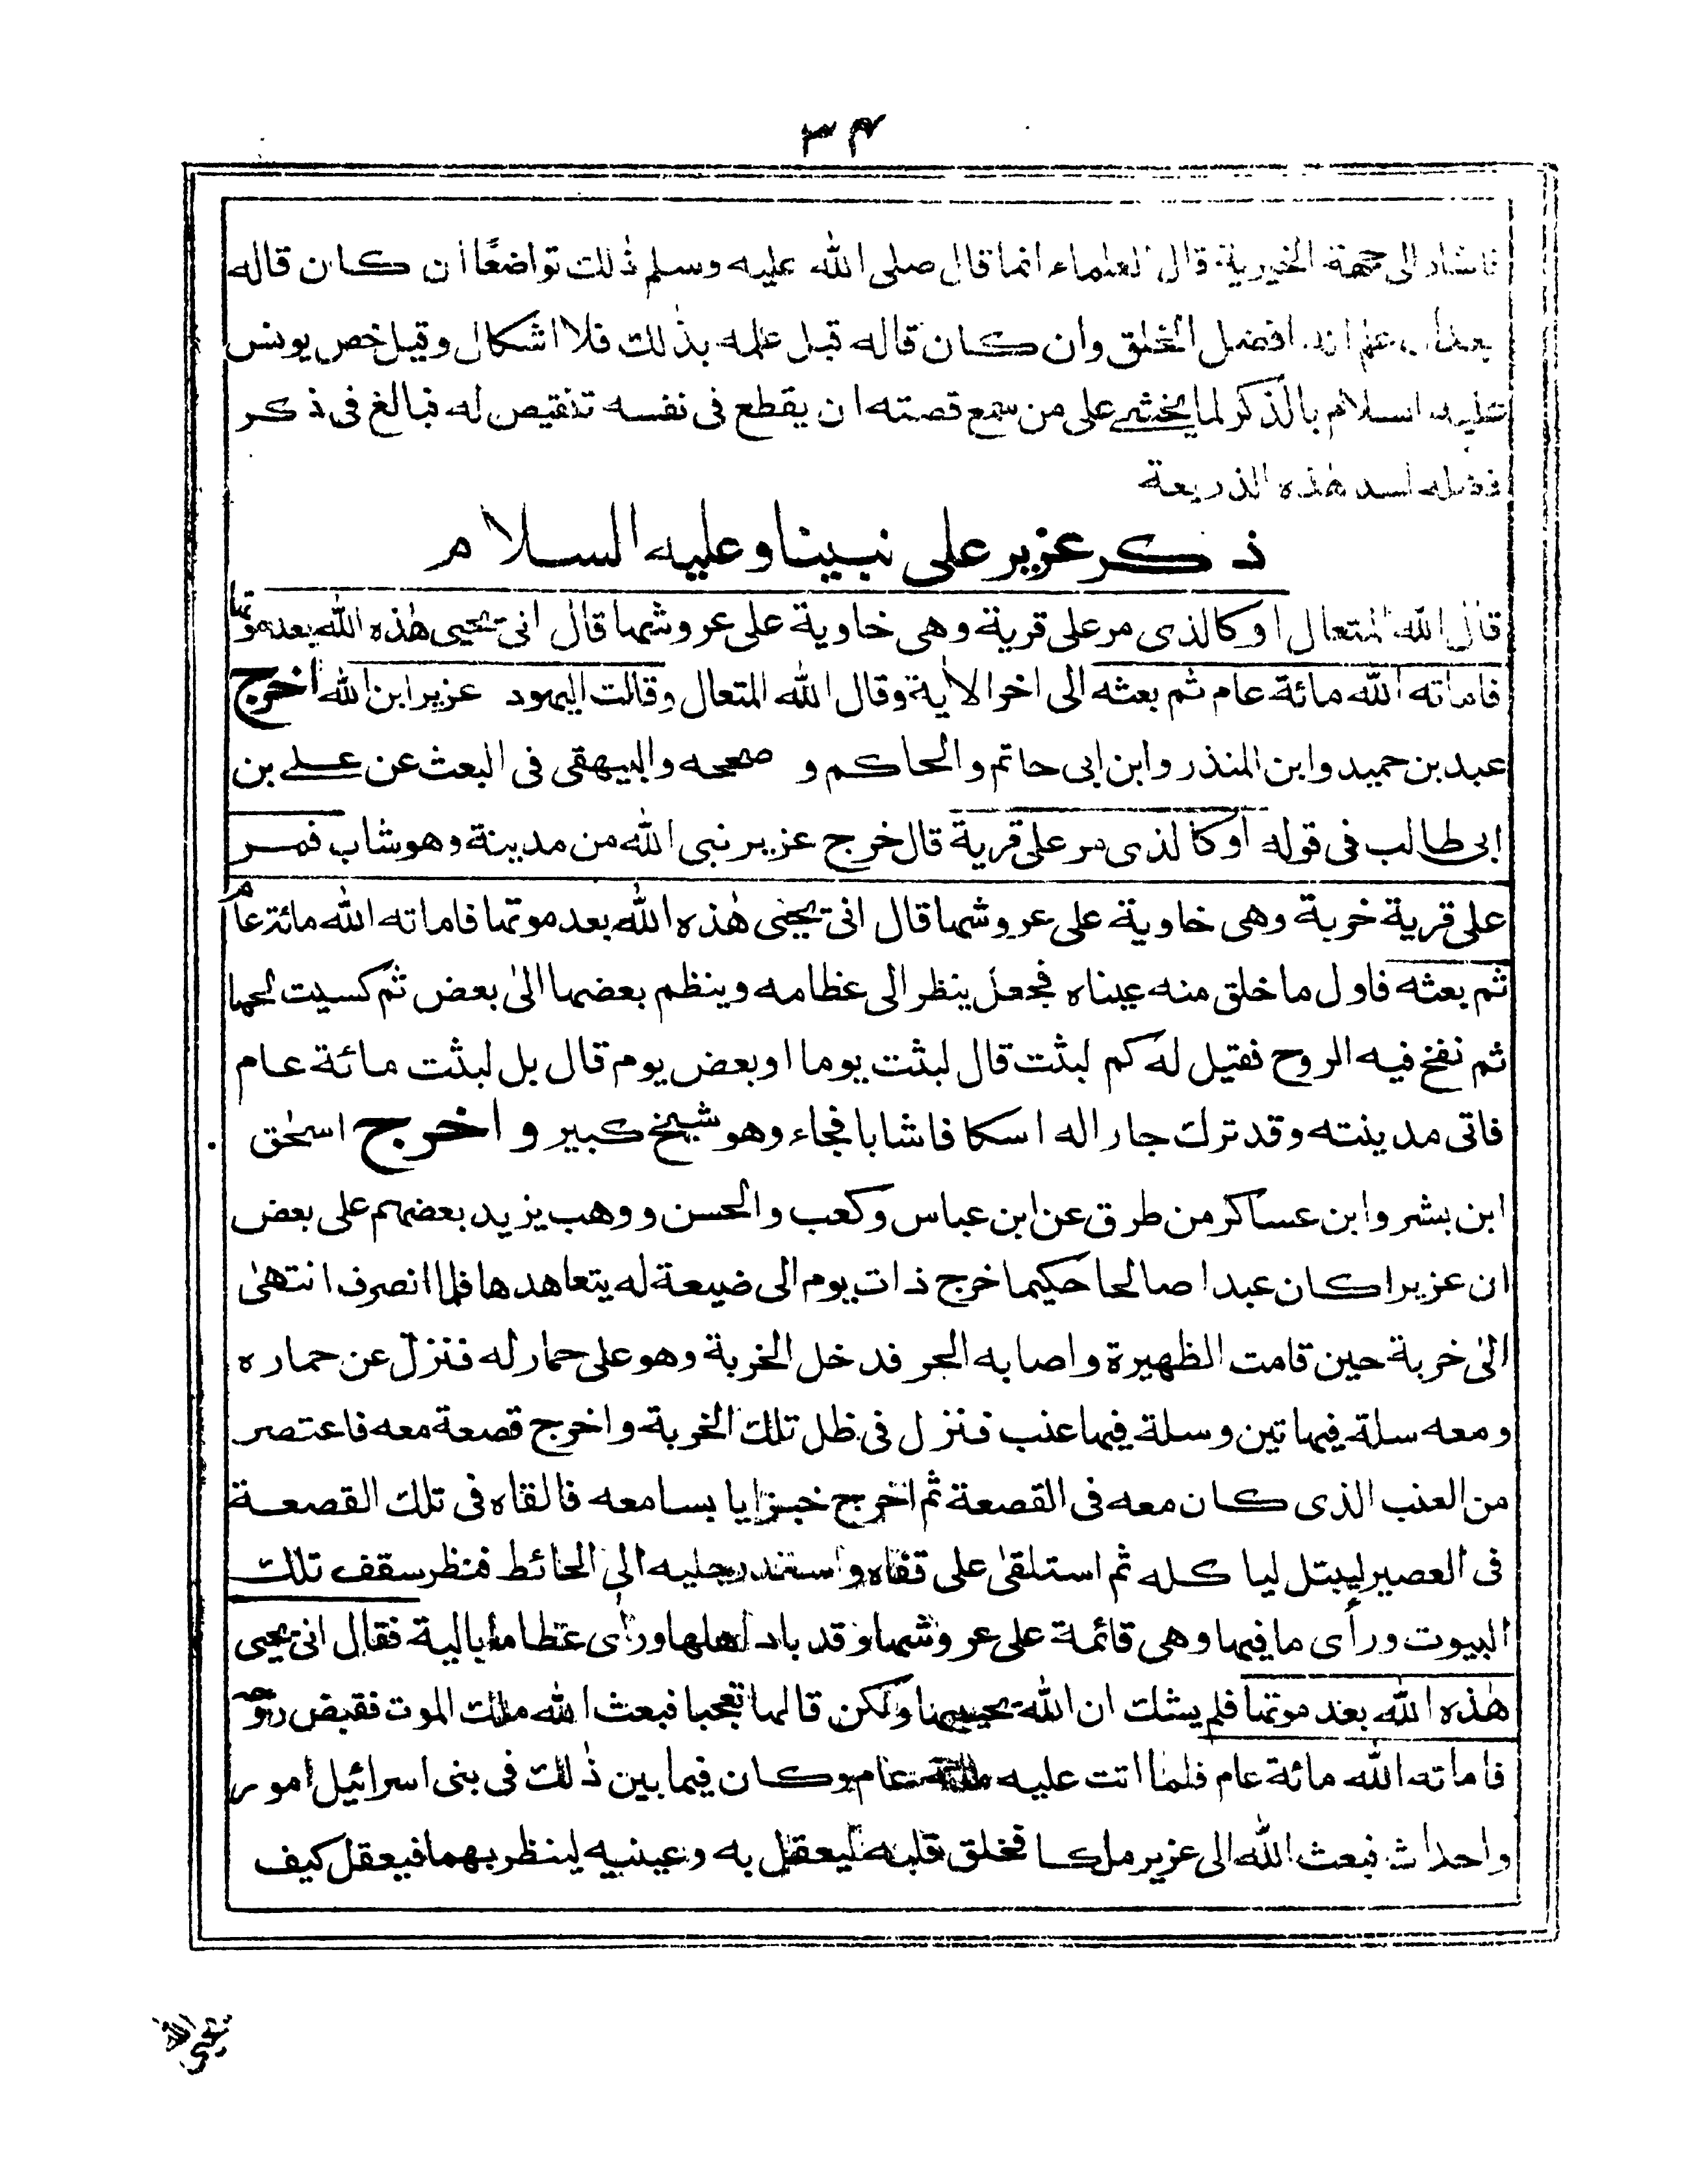 ۳۴
فاشار الى جهة الخيرية قال العلماء انما قال صلى الله عليه وسلم ذلك تواضعًا ان كان قاله
بعد ان علم انه افضل الخلق وان كان قاله قبل علمه بذلك فلا اشكال وقيل خص يونس
عليه السلام بالذكر لما يخشى على من سمع قصته ان يقطع فى نفسه تنقيص له فبالغ فى ذكر
فضله لسد هٰذه الذريعة
ذكر عزير على نبينا وعليه السلام
قال الله المتعال او كالذى مر على قرية وهى خاوية على عروشها قال انى يحيى هٰذه الله بعد موتها
فاماته الله مائة عام ثم بعثه الى اخر الاية وقال الله المتعال وقالت اليهود عزير ابن الله اخرج
عبد بن حميد وابن المنذر وابن ابى حاتم والحاكم و صححه والبيهقى فى البعث عن على بن
ابى طالب فى قوله او كالذى مر على قرية قال خرج عزير نبى الله من مدينة وهو شاب فمر
على قرية خربة وهى خاوية على عروشها قال انى يحيى هٰذه الله بعد موتها فاماته الله مائة عام
ثم بعثه فاول ما خلق منه عيناه فجعل ينظر الى عظامه وينظم بعضها الىٰ بعض ثم كسيت لحما
ثم نفخ فيه الروح فقيل له كم لبثت قال لبثت يوما او بعض يوم قال بل لبثت مائة عام
فاتى مدينته وقد ترك جارا له اسكافا شابا فجاء وهو شيخ كبير و اخرج اسحٰق
ابن بشر وابن عساكر من طرق عن ابن عباس وكعب والحسن ووهب يزيد بعضهم على بعض
ان عزيرا كان عبدا صالحا حكيما خرج ذات يوم الى ضيعة له يتعاهدها فلما انصرف انتهىٰ
الىٰ خربة حين قامت الظهيرة واصابه الحر فدخل الخربة وهو على حمار له فنزل عن حماره
ومعه سلة فيها تين وسلة فيها عنب فنزل فى ظل تلك الخربة واخرج قصعة معه فاعتصر
من العنب الذى كان معه فى القصعة ثم اخرج خبزا يابسا معه فالقاه فى تلك القصعة
فى العصير ليبتل لياكله ثم استلقىٰ على قفاه واستند رجليه الى الحائط فنظر سقف تلك
البيوت ورأى ما فيها وهى قائمة على عروشها وقد باد اهلها ورأى عظاما بالية فقال انى يحيى
هٰذه الله بعد موتها فلم يشك ان الله يحييها ولكن قالها تعجبا فبعث الله ملك الموت فقبض روحه
فاماته الله مائة عام فلما اتت عليه مائة عام وكان فيما بين ذٰلك فى بنى اسرائيل امور
واحداث فبعث الله الى عزير ملكا فخلق قلبه ليعقل به وعينيه لينظر بهما فيعقل كيف
يحيى الله